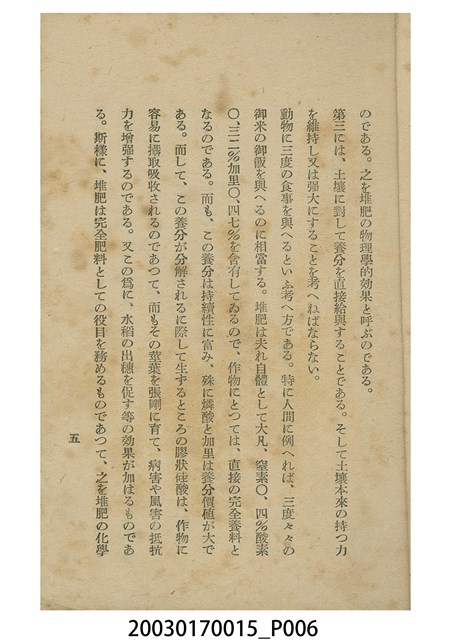 のである。之を堆肥の物理學的効果と呼ぶのである。
第三には、土壤に對して養分を直接給與することである。そして土壤本來の持つ力
を維持し又は强大にすることを考へねばならない。
動物に三度の食事を與へるといふ考へ方である。特に人間に例へれば、三度々々の
御米の御飯を與へるのに相當する。堆肥は夫れ自體として大凡、窒素〇、四%酸素
〇、三二%加里〇、四七%を含有してゐるので、作物にとつては、直接の完全養料と
なるのである。而も、この養分は持續性に富み、殊に燐酸と加里は養分價値が大で
ある。而して、この養分が分解されるに際して生ずるところの膠狀硅酸は、作物に
容易に攝取吸收されるのであつて、而もその莖葉を張剛に育て、病害や風害の抵抗
力を增强するのである。又この爲に、水稻の出穗を促す等の効果が加はるものであ
る。斯樣に、堆肥は完全肥料としての役目を務めるものであつて、之を堆肥の化學
五
20030170015_P006